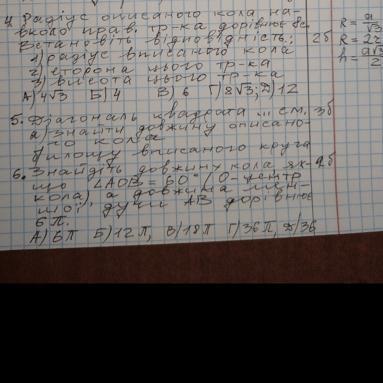 4. Радіус описаного кола на-
вколо прав. тр-ка дорівнює 8см.
Встановіть відповідність: 2б
1) радіус вписаного кола
2) сторона цього тр-ка
3) висота цього тр-ка
А) 4√3 Б) 4 В) 6 Г) 8√3; Д) 12
R = a/√3
R = 2r
h = a√3/2
5. Діагональ квадрата ... см. 3б
а) знайти довжину описано-
го кола
б) площу вписаного круга
6. Знайдіть довжину кола як- 2б
що ∠AOB = 60° (O-центр
кола), а довжина мен-
шої дуги AB дорівнює
6π.
А) 6π Б) 12π, В) 18π Г) 36π, Д) 36